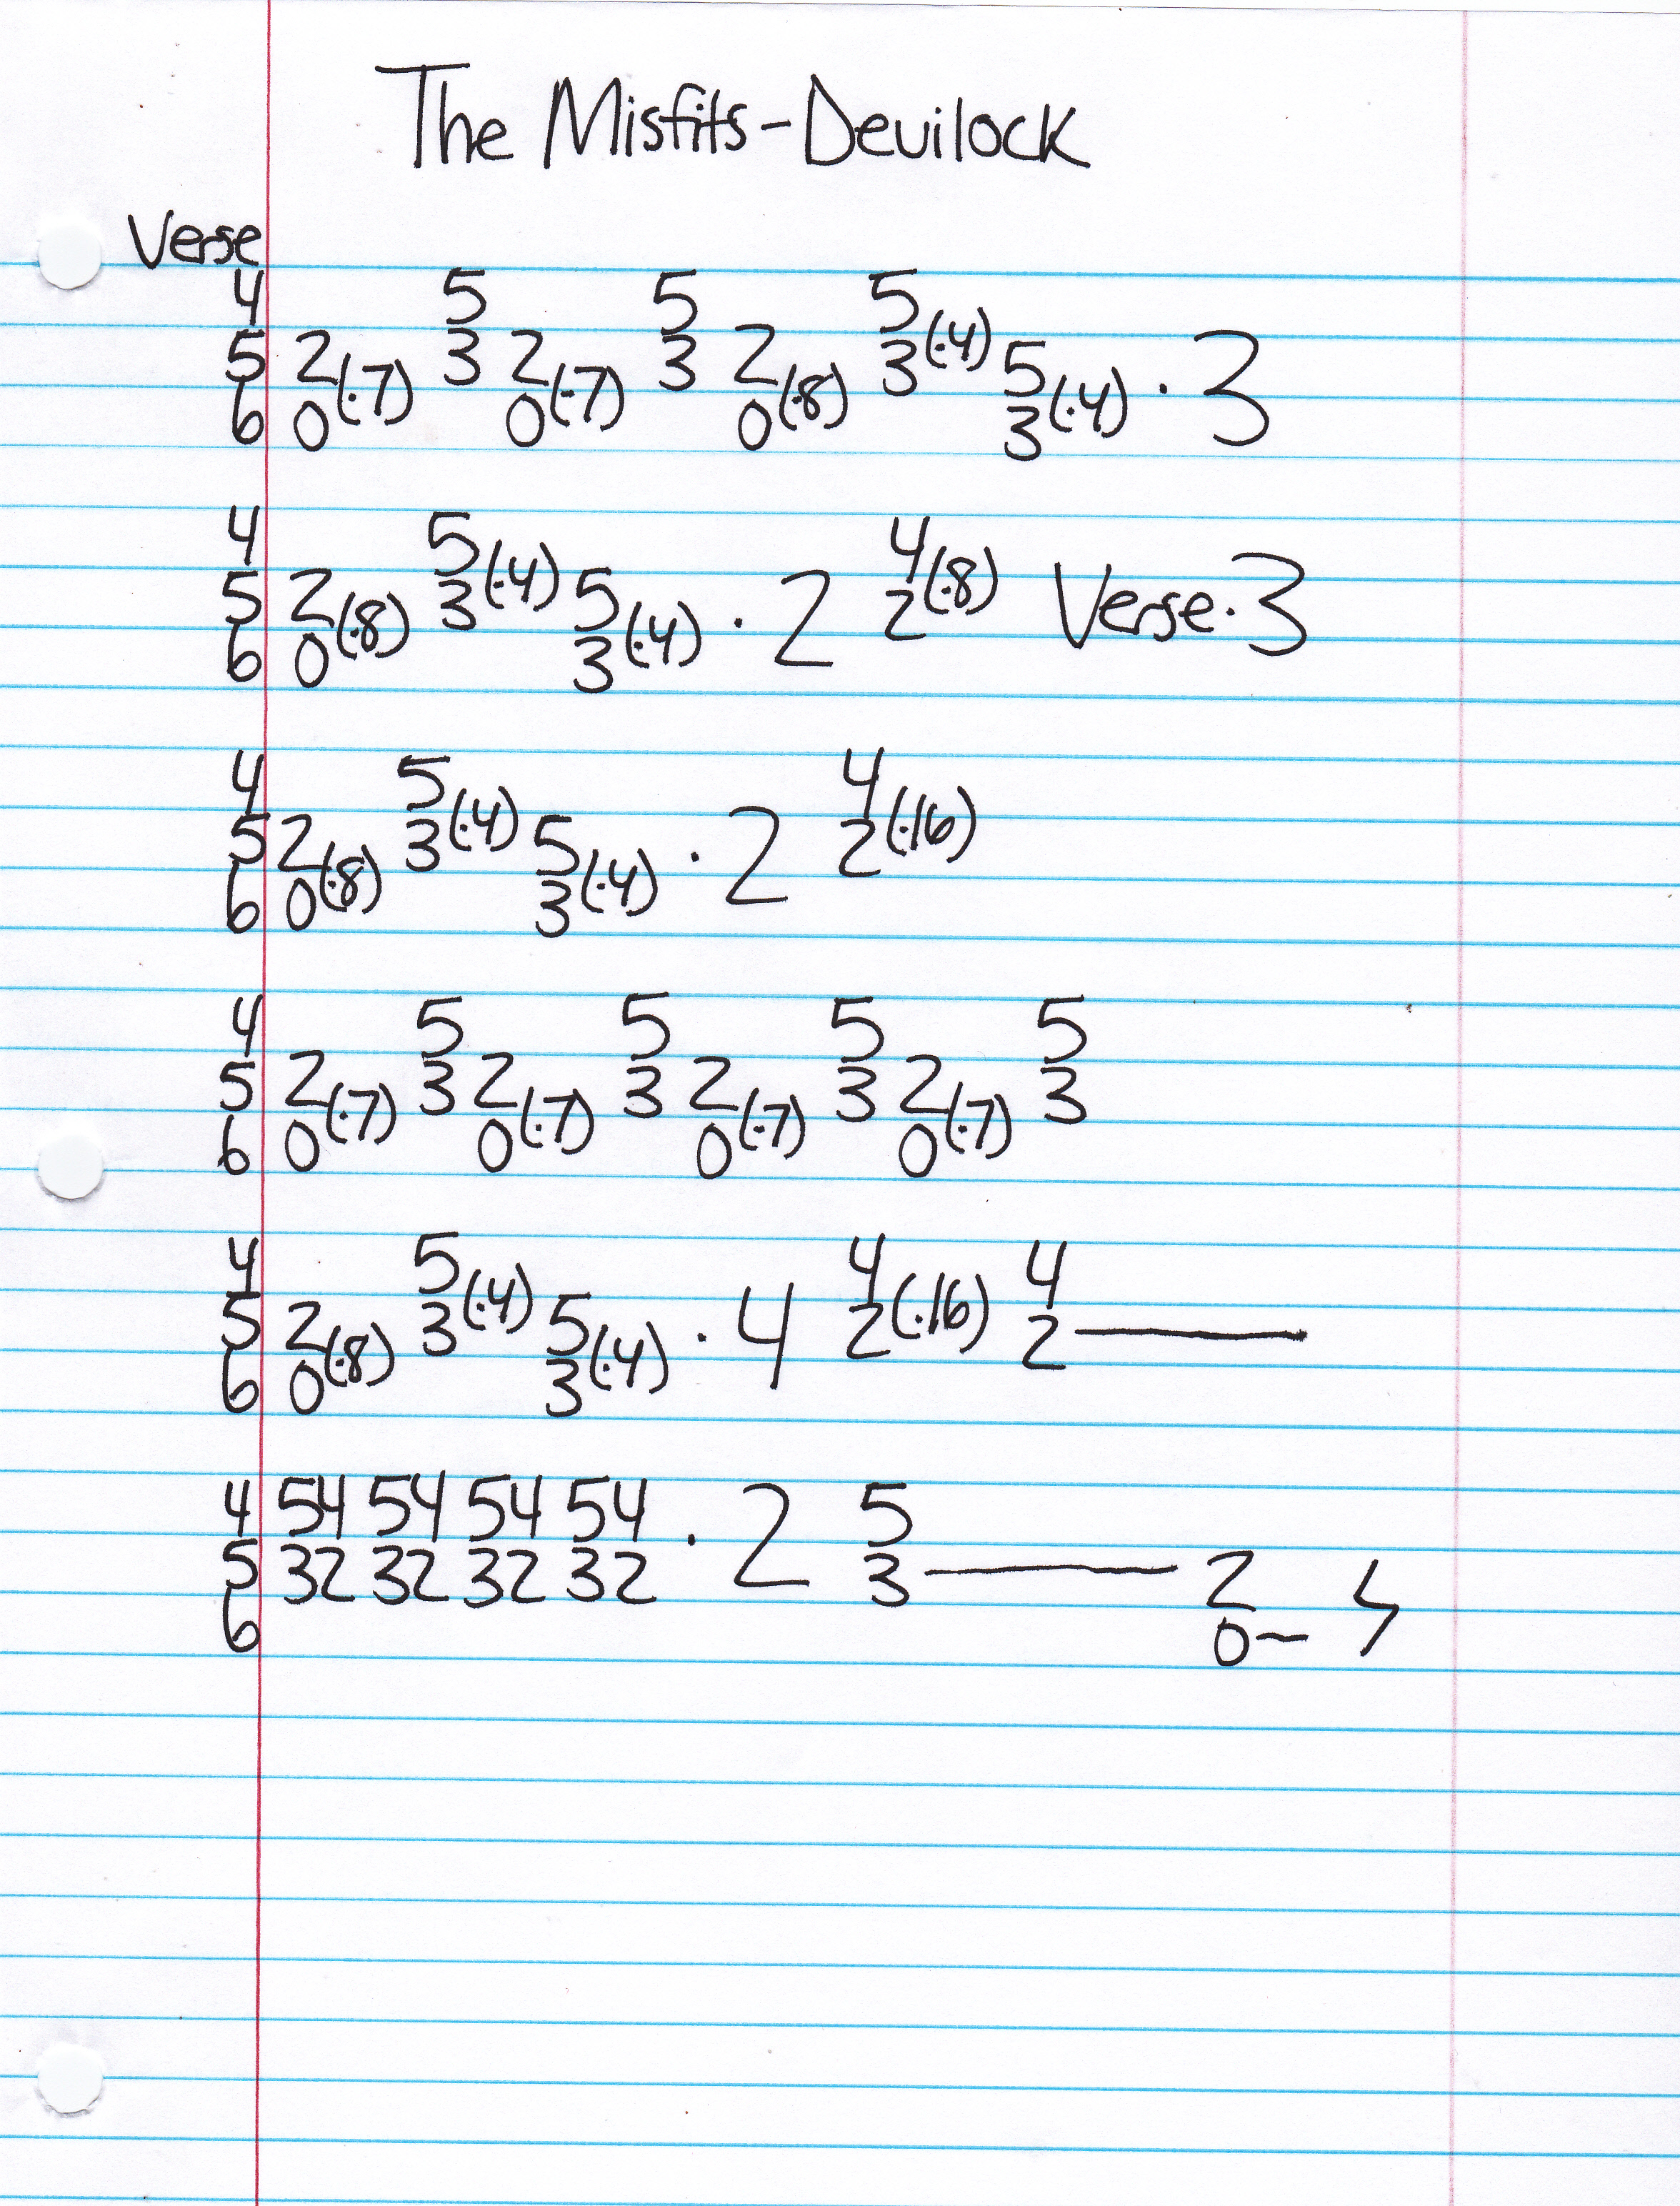 The Misfits - Devilock
Verse
4 5 5 5
5 2 (·7) 3 2 (·7) 3 2 (·8) 3 (·4) 5 (·4) · 3
6 0 0 0 3
4 5 4
5 2 (·8) 3 (·4) 5 (·4) · 2 2 (·8) Verse · 3
6 0 3
4 5 4
5 2 (·8) 3 (·4) 5 (·4) · 2 2 (·16)
6 0 3
4 5 5 5 5
5 2 (·7) 3 2 (·7) 3 2 (·7) 3 2 (·7) 3
6 0 0 0 0
4 5 4 4
5 2 (·8) 3 (·4) 5 (·4) · 4 2 (·16) 2 —
6 0 3
4 54 54 54 54 5
5 32 32 32 32 · 2 3 — 2
6 0 ~